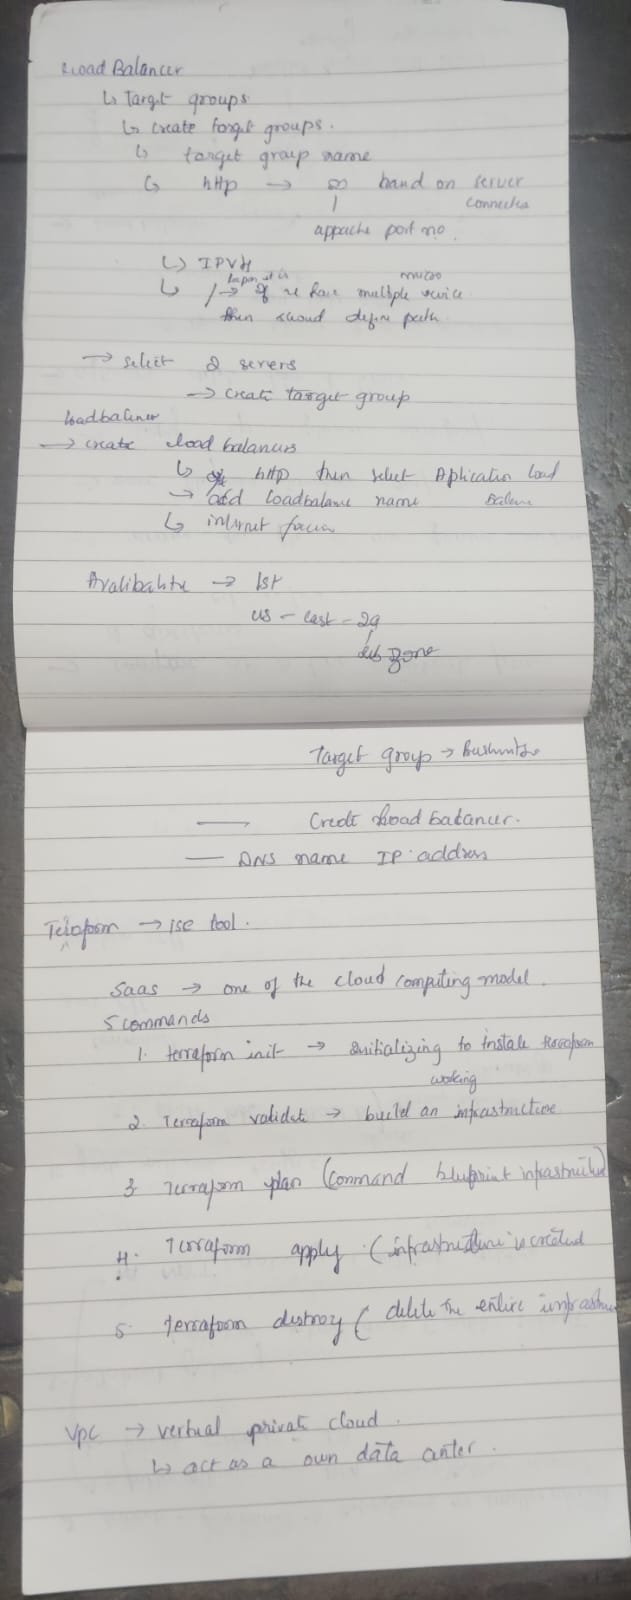 Load Balancer
↳ Target groups
↳ create target groups.
↳ target group name
↳ http → 80 hand on server
connected
appache port no.
↳ IPV4
↳ / → if we have multiple service
micro
then should define path
→ select 2 servers
→ create target group
loadbalancer
→ create load balancers
↳ http then select Aplication load
→ add loadbalance name
↳ internet facin
Avalibality → 1st
us - east - 2a
zone
Target group →
— Create Load balancer.
— DNS name IP address
Terraform → tool.
Saas → one of the cloud computing model.
5 commands
1. terraform init → initializing to install terraform
working
2. Terraform validate → build an infrastructure
3. Terraform plan (command blueprint infrastructure)
4. Terraform apply (infrastructure is created
5. terraform destroy ( delete the entire infrastructure
VPC → vertual private cloud.
↳ act as a own data center.